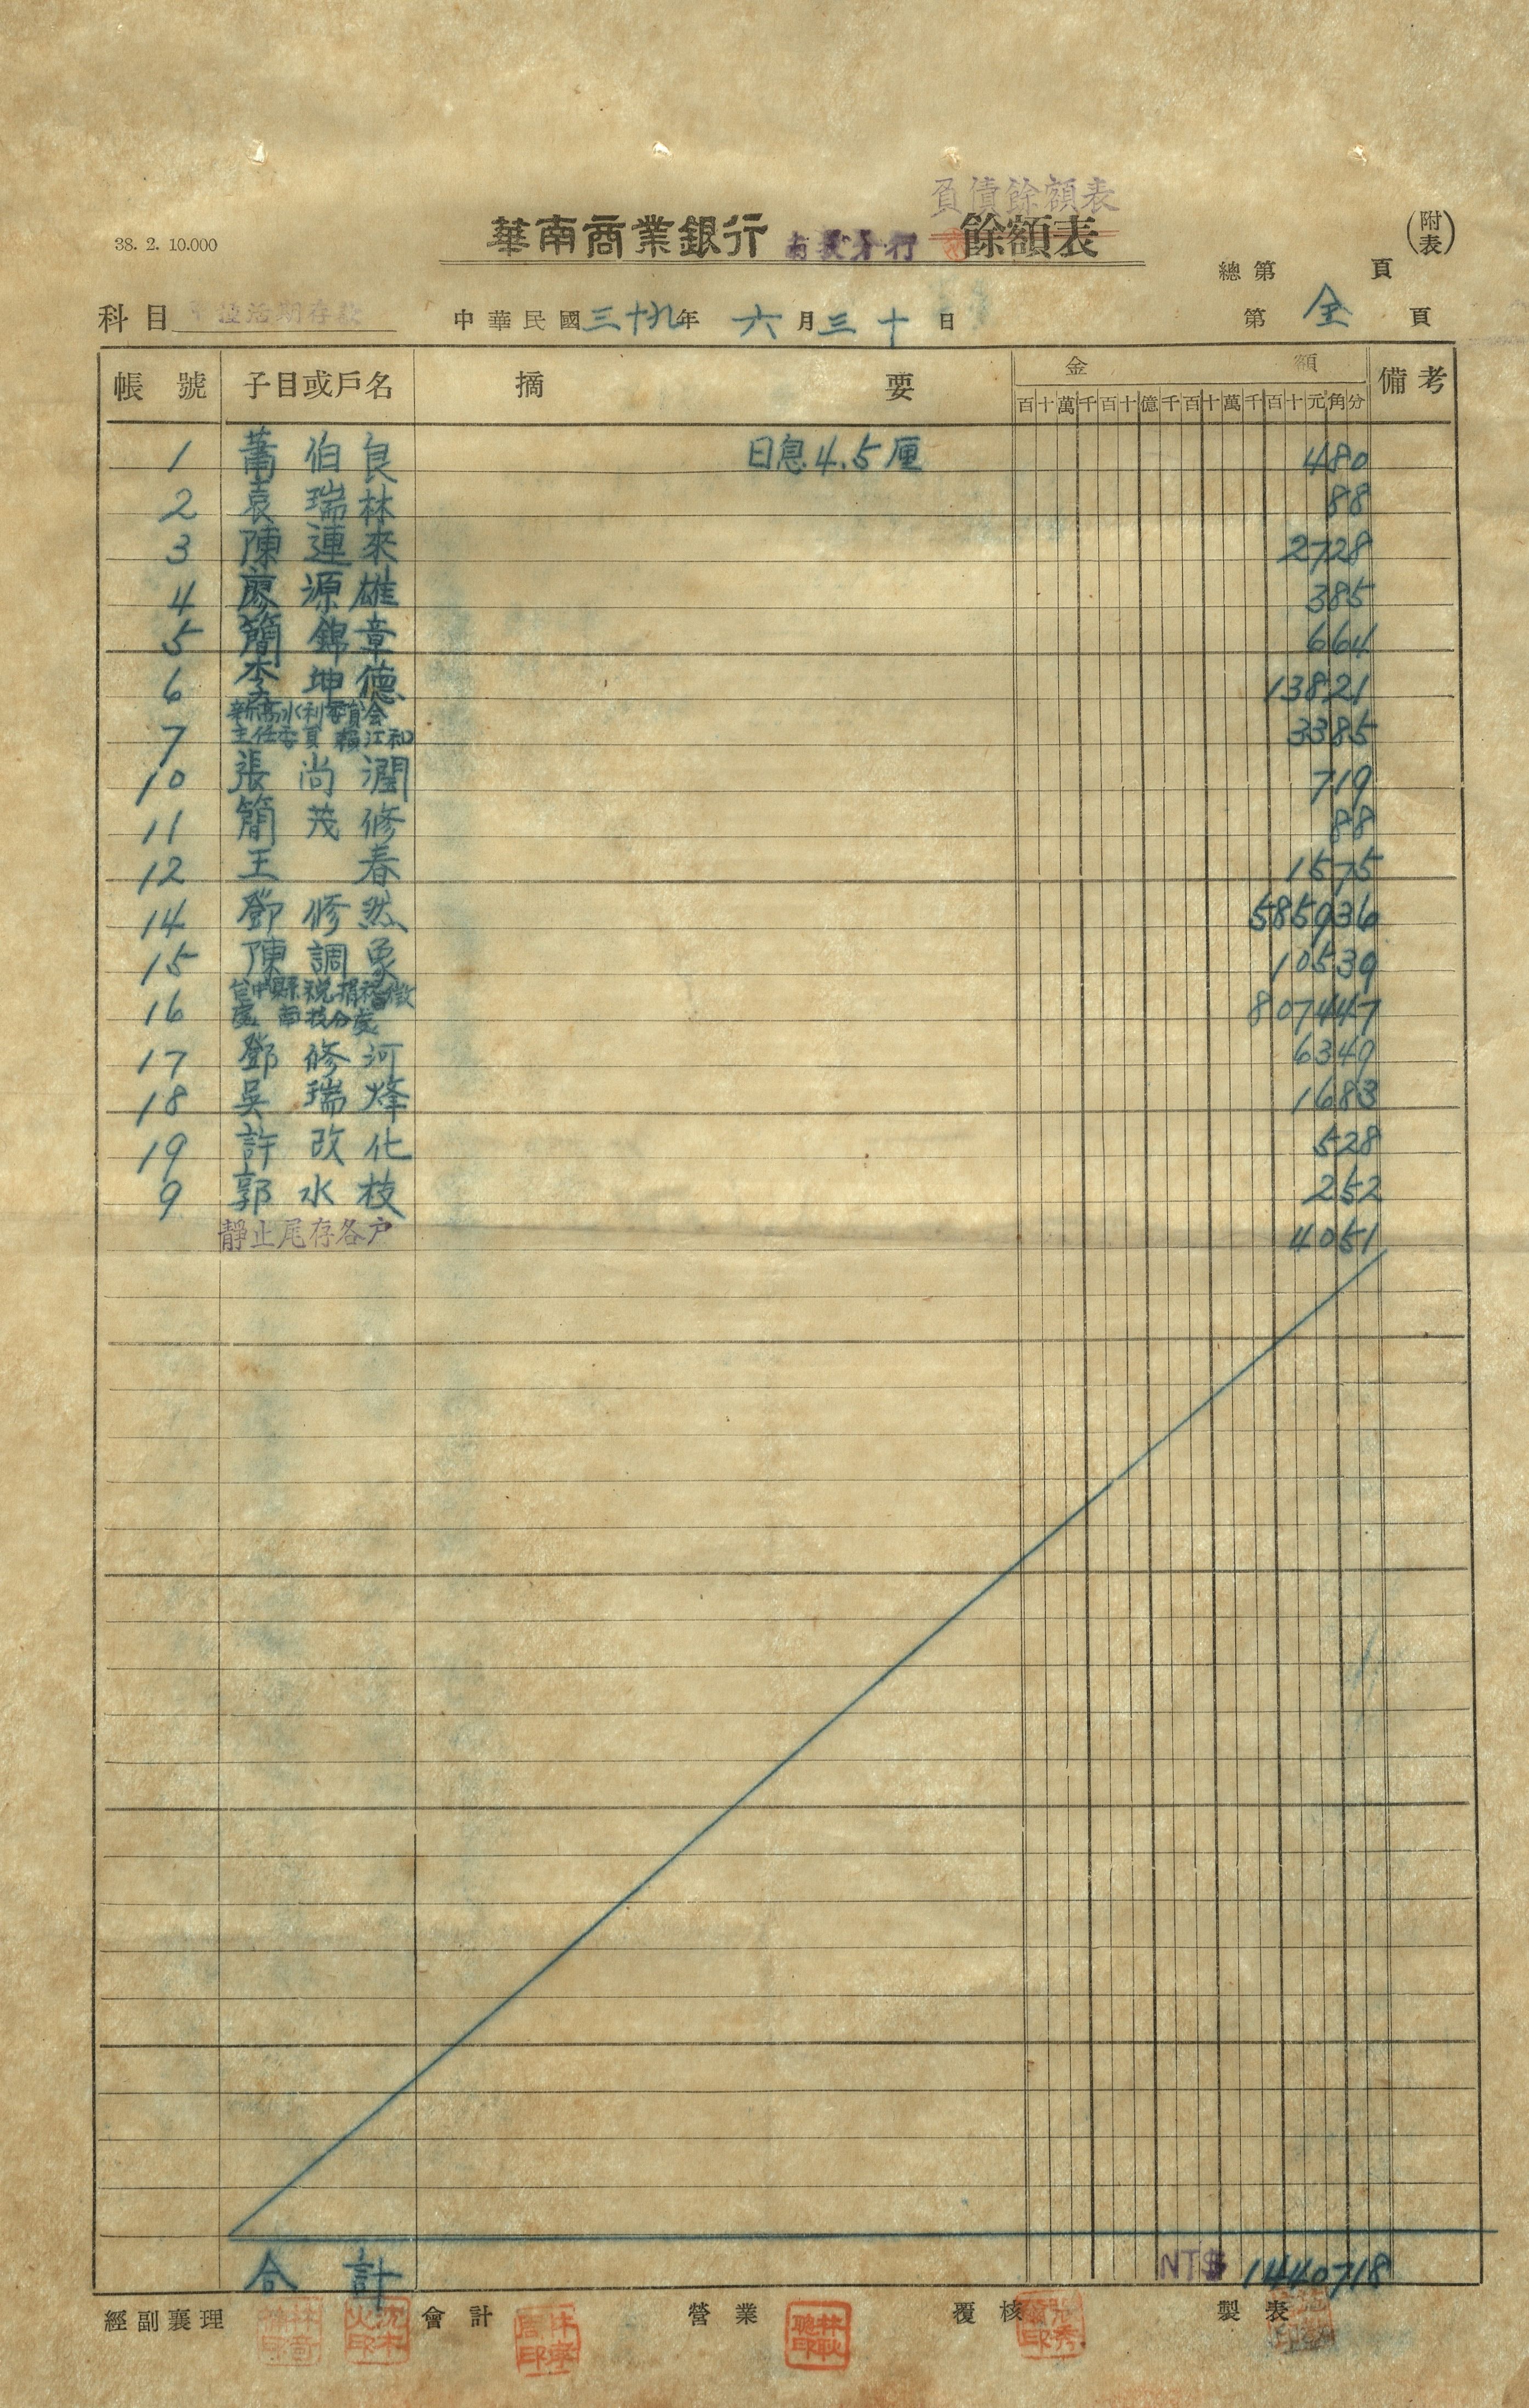 負債餘額表
38. 2. 10.000
華南商業銀行 南投分行 餘額表
(附表)
總第 頁
科目 活期存款 中華民國三十九年 六月三十日 第 全 頁
帳號 子目或戶名 摘要 金額 備考
百十萬千百十億千百十萬千百十元角分
1 蕭伯良 日息4.5厘 480
2 袁瑞林 88
3 陳連來 2728
4 廖源雄 385
5 簡錦章 664
6 李坤德 13821
新高水利委員会
7 主任委員 賴江和 3385
10 張尚潤 719
11 簡茂修 88
12 王春 1575
14 鄧修然 585936
15 陳調象 10539
台中縣税捐稽徵
16 處 南投分處 807447
17 鄧修河 6349
18 吳瑞烽 1683
19 許改化 528
9 郭水枝 252
靜止尾存各户 4051
合計 NT$ 1440718
經副襄理 會計 營業 覆核 製表